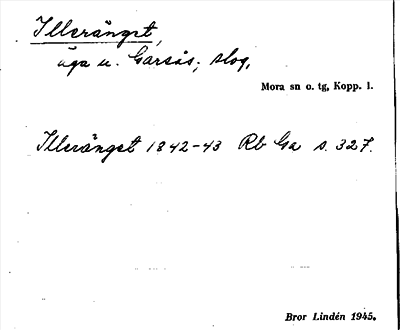 Illeränget,
äga u. Garsås; slog,
Mora sn o. tg, Kopp. l.
Illeränget 1842-43 Rb Ga s. 327.
Bror Lindén 1945.